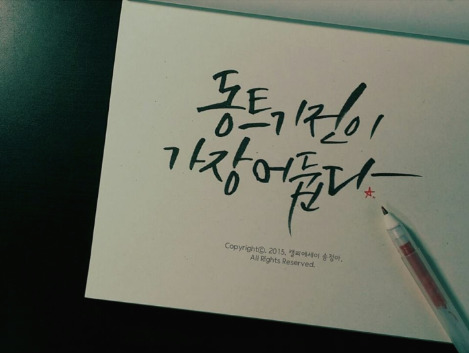 동트기전이
가장어둡다
Copyrightⓒ, 2015, 캘리에세이 웅정아,
All Rights Reserved.